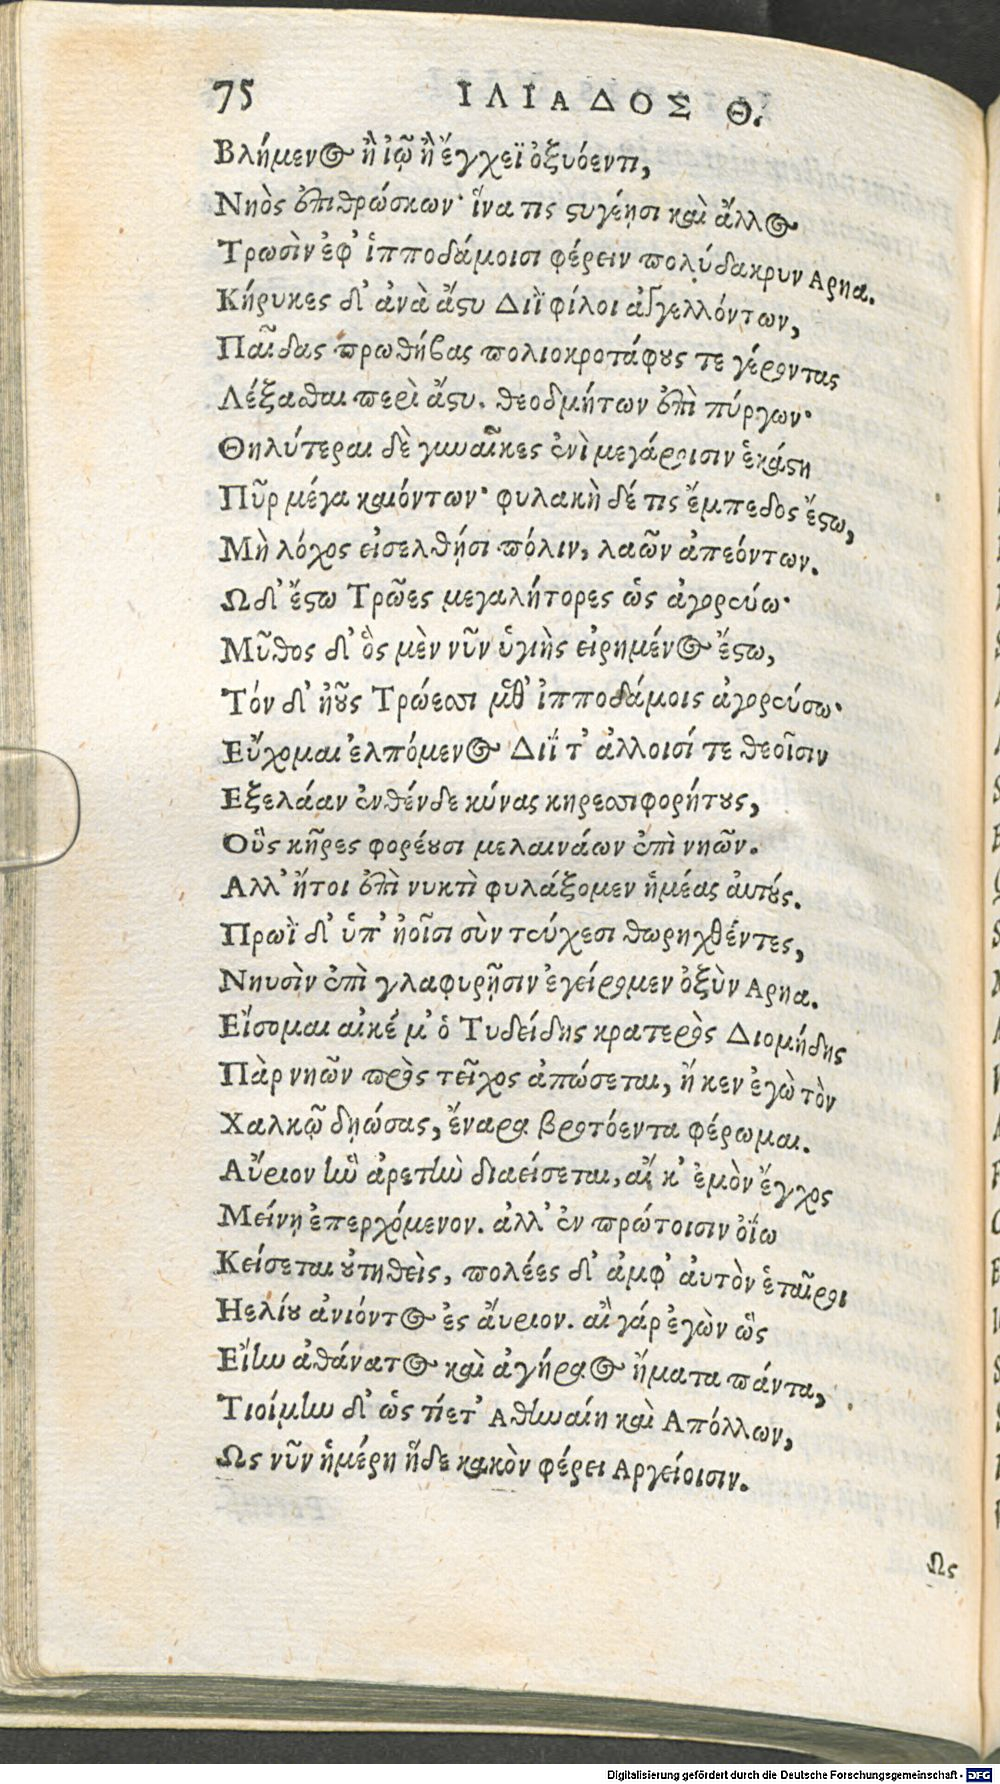 75 ΙΛΙΑΔΟΣ Θ.
Βλήμενος ἢ ἰῷ ἢ ἔγχεϊ ὀξυόεντι,
Νηὸς ἐπιθρώσκων· ἵνα τις στυγέῃσι καὶ ἄλλος
Τρωσὶν ἐφ' ἱπποδάμοισι φέρειν πολύδακρυν Αρηα.
Κήρυκες δ' ἀνὰ ἄστυ Διῒ φίλοι ἀγγελλόντων,
Παῖδας πρωθήβας πολιοκροτάφους τε γέροντας
Λέξασθαι περὶ ἄστυ. θεοδμήτων ἐπὶ πύργων·
Θηλύτεραι δὲ γυναῖκες ἐνὶ μεγάροισιν ἑκάστη
Πῦρ μέγα καιόντων· φυλακὴ δέ τις ἔμπεδος ἔστω,
Μὴ λόχος εἰσελθῃσι πόλιν, λαῶν ἀπεόντων.
Ωδ' ἔστω Τρῶες μεγαλήτορες ὡς ἀγορεύω·
Μῦθος δ' ὃς μὲν νῦν ὑγιὴς εἰρημένος ἔστω,
Τόν δ' ἠοῦς Τρώεσσι μεθ' ἱπποδάμοις ἀγορεύσω·
Εὔχομαι ἐλπόμενος Διΐ τ' ἀλλοισί τε θεοῖσιν
Εξελάαν ἐνθένδε κύνας κηρεσσιφορήτους,
Οὓς κῆρες φορέουσι μελαινάων ἐπὶ νηῶν.
Αλλ' ἤτοι ἐπὶ νυκτὶ φυλάξομεν ἡμέας αὐτούς.
Πρωῒ δ' ὑπ' ἠοῖσι σὺν τεύχεσι θωρηχθέντες,
Νηυσὶν ἐπὶ γλαφυρῇσιν ἐγείρομεν ὀξὺν Αρηα.
Εἴσομαι αἰκέ μ' ὁ Τυδείδης κρατερὸς Διομήδης
Πὰρ νηῶν πρὸς τεῖχος ἀπώσεται, ἤ κεν ἐγὼ τὸν
Χαλκῷ δῃώσας, ἔναρα βροτόεντα φέρωμαι.
Αὔριον ἣν ἀρετὴν διαείσεται, αἴ κ' ἐμὸν ἔγχος
Μείνῃ ἐπερχόμενον. ἀλλ' ἐν πρώτοισιν ὀΐω
Κείσεται οὐτηθεὶς, πολέες δ' ἀμφ' αὐτὸν ἑταῖροι
Ηελίου ἀνιόντος ἐς αὔριον. αἲ γάρ ἐγὼν ὣς
Εἴην ἀθάνατος καὶ ἀγήραος ἤματα πάντα,
Τιοίμην δ' ὡς τίετ' Αθηναίη καὶ Απόλλων,
Ως νῦν ἡμέρη ἥδε κακὸν φέρει Αργείοισιν.
Ως
Digitalisierung gefördert durch die Deutsche Forschungsgemeinschaft - DFG